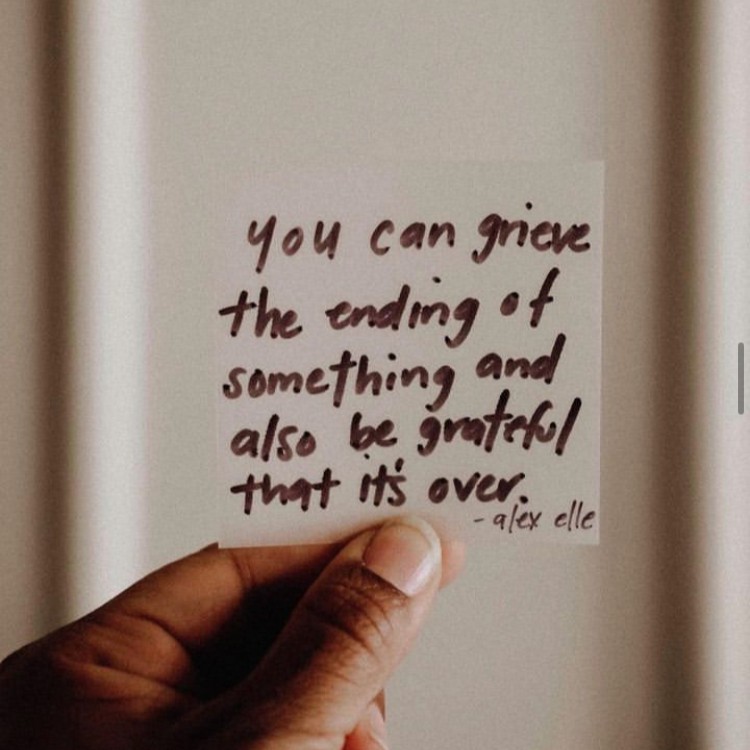 you can grieve
the ending of
something and
also be grateful
that it's over.
- alex elle